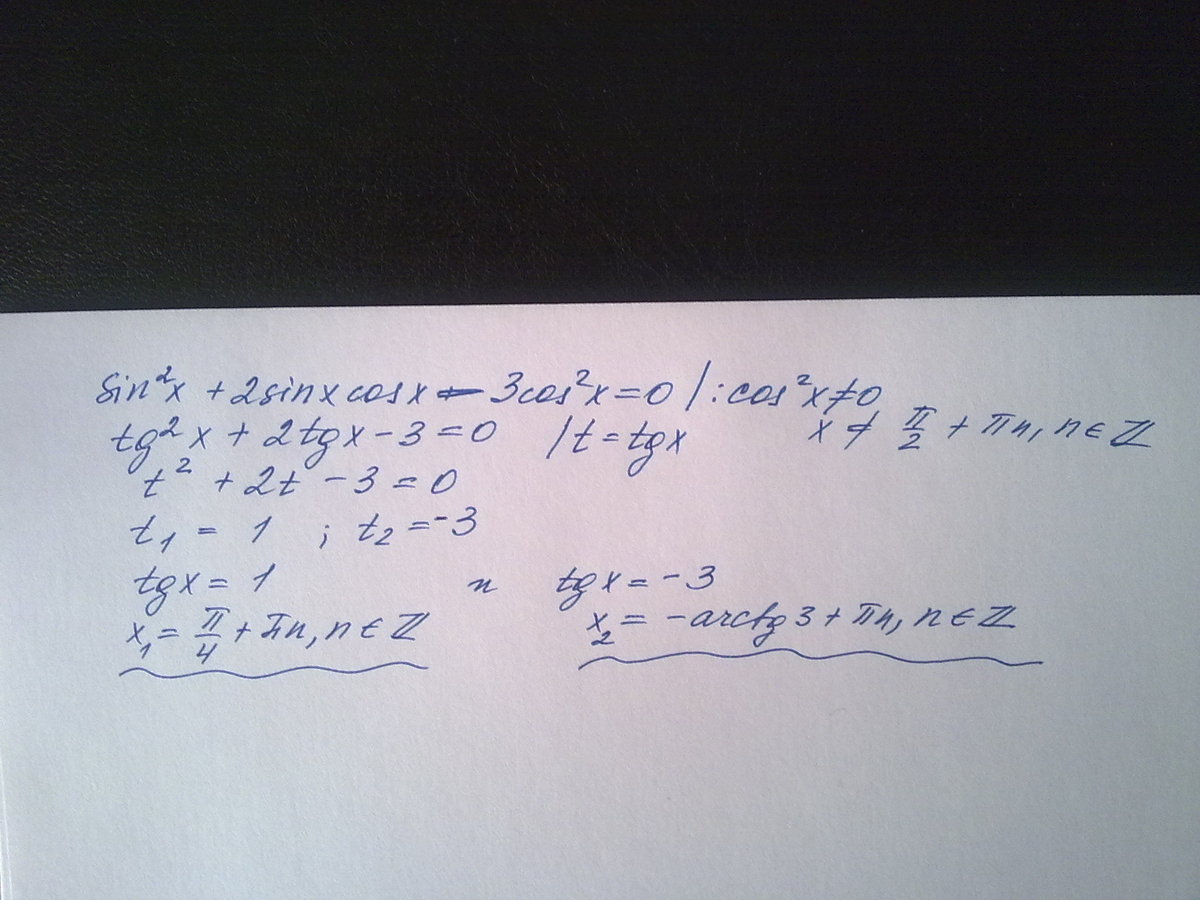 sin²x + 2sinx cosx - 3cos²x = 0 | : cos²x ≠ 0
tg²x + 2tgx - 3 = 0 | t = tgx x ≠ π/2 + πn, n ∈ ℤ
t² + 2t - 3 = 0
t₁ = 1 ; t₂ = -3
tgx = 1 и tgx = -3
x₁ = π/4 + πn, n ∈ ℤ x₂ = -arctg3 + πn, n ∈ ℤ